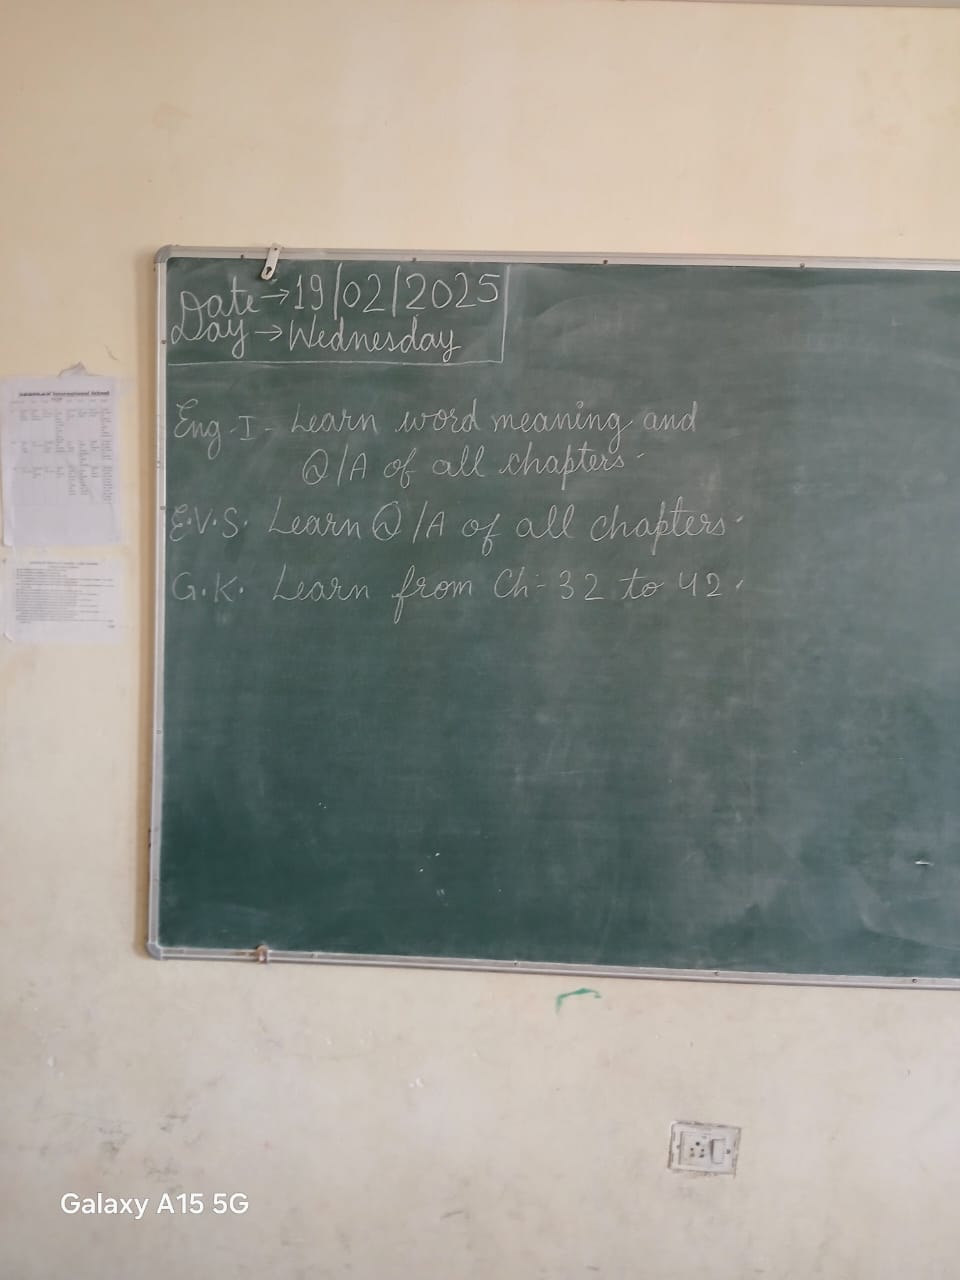 Date → 19/02/2025
Day → Wednesday
Eng-I - Learn word meaning and
Q/A of all chapters.
E.V.S. Learn Q/A of all chapters.
G.K. Learn from Ch- 32 to 42.
International School
Galaxy A15 5G